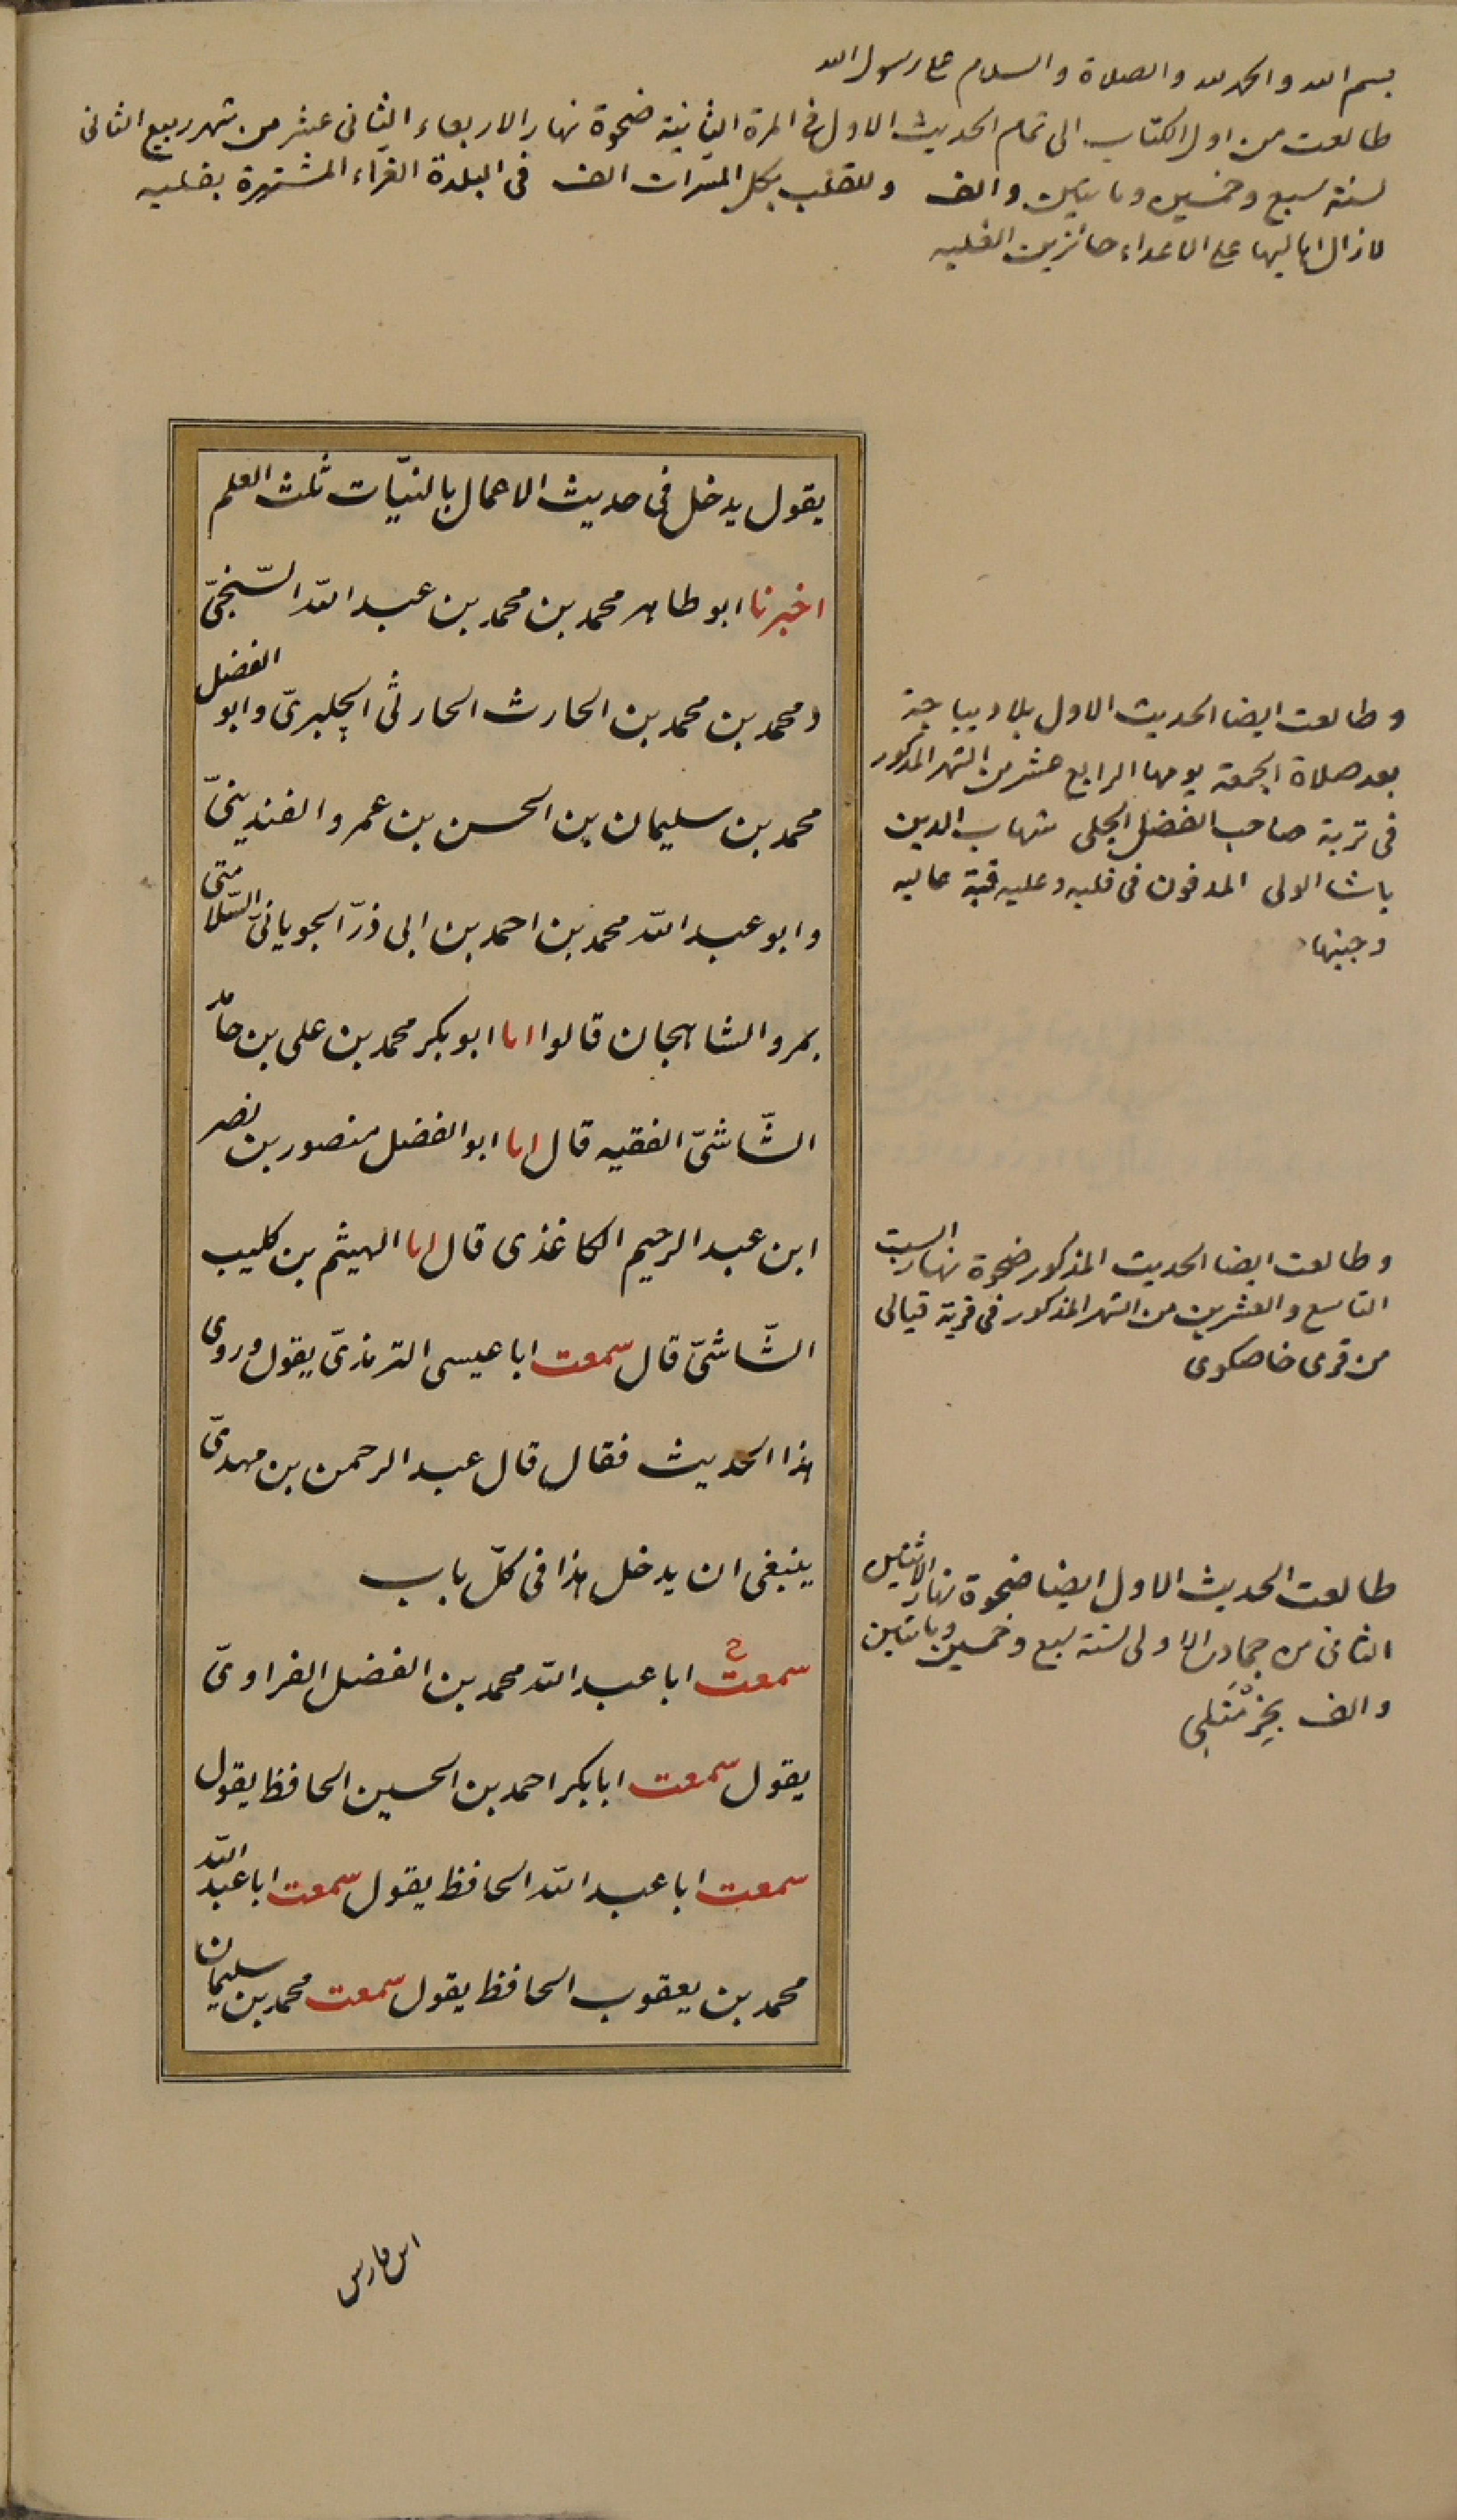 بسم الله والحمد لله والصلاة والسلام على رسول الله
طالعت من اول الكتاب الى تمام الحديث الاول فى المرة الثانية ضحوة نهار الاربعاء الثانى عشر من شهر ربيع الثانى
لسنة سبع وخمسين ومايتين والف وللقلب بكل المسرات الف فى البلدة الغراء المشتهرة بفلبه
لازال اهاليها على الاعداء حائزين الغلبه
يقول يدخل فى حديث الاعمال بالنيّات ثلث العلم
اخبرنا ابو طاهر محمد بن محمد بن عبد الله السّنجىّ
ومحمد بن محمد بن الحارث الحارثى الجلبرىّ وابو الفضل
محمد بن سليمان بن الحسن بن عمرو الفندينىّ
وابو عبد الله محمد بن احمد بن ابى ذرّ الجوبانىّ السّلامتى
بمرو الشاهجان قالوا انا ابو بكر محمد بن على بن حامد
الشّاشىّ الفقيه قال انا ابو الفضل منصور بن نصر
ابن عبد الرحيم الكاغذى قال انا الهيثم بن كليب
الشّاشىّ قال سمعت ابا عيسى الترمذىّ يقول وروى
هذا الحديث فقال قال عبد الرحمن بن مهدىّ
ينبغى ان يدخل هذا فى كلّ باب
سمعت ابا عبد الله محمد بن الفضل الفراوىّ
يقول سمعت ابا بكر احمد بن الحسين الحافظ يقول
سمعت ابا عبد الله الحافظ يقول سمعت ابا عبد الله
محمد بن يعقوب الحافظ يقول سمعت محمد بن سليمان
ابن فارس
وطالعت ايضا الحديث الاول بلا ديباجة
بعد صلاة الجمعة يومها الرابع عشر من الشهر المذكور
فى تربة صاحب الفضل الجلى شهاب الدين
باشا الولى المدفون فى فلبه وعليه قبة عاليه
وطالعت ايضا الحديث المذكور ضحوة نهار السبت
التاسع والعشرين من الشهر المذكور فى قرية قيالى
من قرى خاصكوى
طالعت الحديث الاول ايضا ضحوة نهار الاثنين
الثانى من جمادى الاولى لسنة سبع وخمسين ومائتين
والف